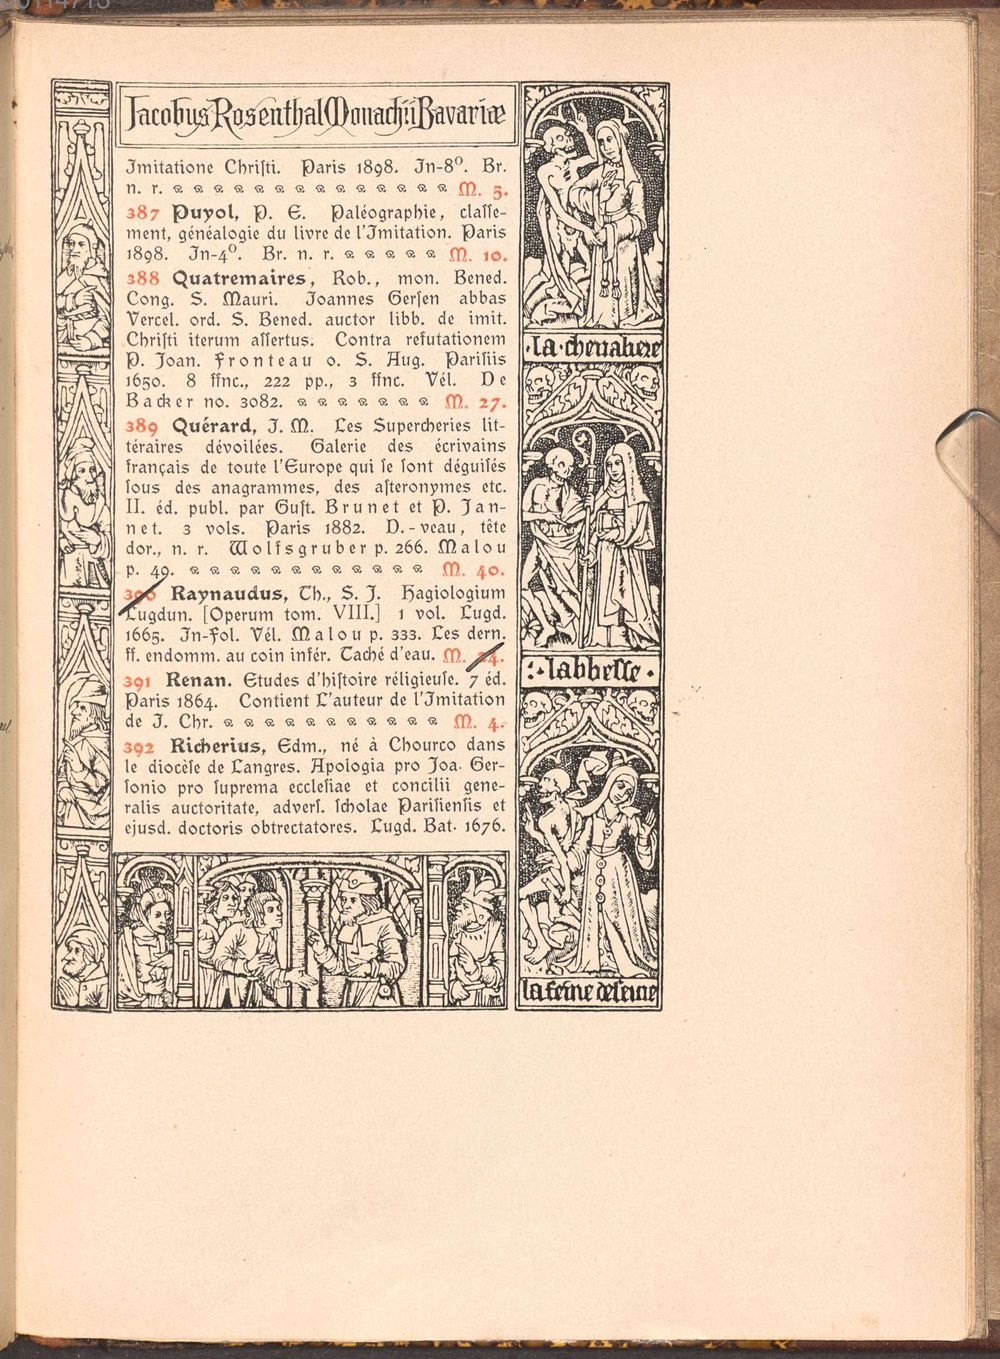 Jacobus Rosenthal Monachii Bavariæ
Imitatione Chriſti. Paris 1898. In-8⁰. Br.
n. r. M. 5.
387 Puyol, P. E. Paléographie, claſſe-
ment, généalogie du livre de l'Imitation. Paris
1898. In-4⁰. Br. n. r. M. 10.
388 Quatremaires, Rob., mon. Bened.
Cong. S. Mauri. Joannes Gerſen abbas
Vercel. ord. S. Bened. auctor libb. de imit.
Chriſti iterum aſſertus. Contra refutationem
P. Joan. Fronteau o. S. Aug. Pariſiis
1650. 8 ffnc., 222 pp., 3 ffnc. Vél. De
Backer no. 3082. M. 27.
389 Quérard, J. M. Les Supercheries lit-
téraires dévoilées. Galerie des écrivains
français de toute l'Europe qui ſe ſont déguiſés
ſous des anagrammes, des aſteronymes etc.
II. éd. publ. par Guſt. Brunet et P. Jan-
net. 3 vols. Paris 1882. D.-veau, tête
dor., n. r. Wolfsgruber p. 266. Malou
p. 49. M. 40.
390 Raynaudus, Th., S. J. Hagiologium
Lugdun. [Operum tom. VIII.] 1 vol. Lugd.
1665. In-Fol. Vél. Malou p. 333. Les dern.
ff. endomm. au coin infér. Taché d'eau. M. 24.
391 Renan. Etudes d'hiſtoire réligieuſe. 7 éd.
Paris 1864. Contient L'auteur de l'Imitation
de J. Chr. M. 4.
392 Richerius, Edm., né à Chourco dans
le diocèſe de Langres. Apologia pro Joa. Ger-
ſonio pro ſuprema eccleſiae et concilii gene-
ralis auctoritate, adverſ. ſcholae Pariſienſis et
ejusd. doctoris obtrectatores. Lugd. Bat. 1676.
·la·chevaliere
:·labbeſſe·